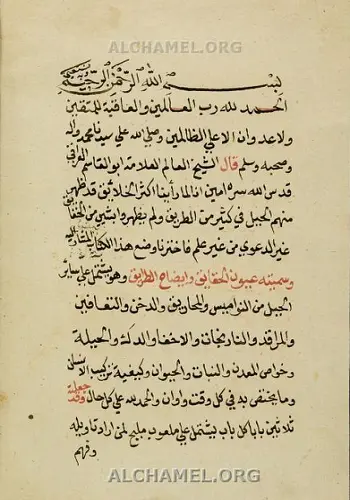 ALCHAMEL.ORG
بسم الله الرحمن الرحيم
الحمد لله رب العالمين والعاقبة للمتقين
ولا عدوان الا علي الظالمين وصلي الله علي سيدنا محمد واله
وصحبه وسلم قال الشيخ العالم العلامة ابو القاسم العراقي
قدس الله سره امين انا لما راينا اكثر الخلائق قد ظهر
منهم الجيل في كثير من الطريق ولم يظهروا بشي من الحقايق
غير الدعوي من غير علم فاخترنا وضع هذا الكتاب
وسميته عيون الحقايق وايضاح الطرايق وهو يشتمل علي ساير
الجيل من النواميس والمخاريق والدخن والتعافين
والمراقد والنارنجات والاخفا والدك والحيلة
وخواص المعدن والنبات والحيوان وكيفية تركيب
وما يختفى به في كل وقت واوان والحمد لله علي كل حال وقد جعلته
ثلاثين بابا كل باب يشتمل علي ملعوب مليح لمن اراد تاويله
وفهم
ALCHAMEL.ORG